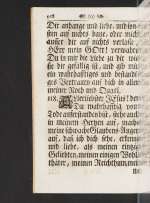 Dir anhange und liebe, und sonsten auf nichts baue, oder mich ausser dir auf nichts verlasse.
HErr mein GOtt! verwahre Du in mir die Liebe zu dir, wie sie dir gefällig ist, und gib mir ein wahrhafftiges und beständiges Vertrauen auf dich in aller meiner Noth und Quaal.
Allerliebster JEsus!
Du wahrhafftig vom Tode auferstanden bist,
in meinem Hertzen auf, mache meine schwache Glaubens-Augen auf, daß ich dich sehe, erkenne und liebe, als meinen einigen Geliebten, meinen einigen Wohlthäter, meinen Reichthum,